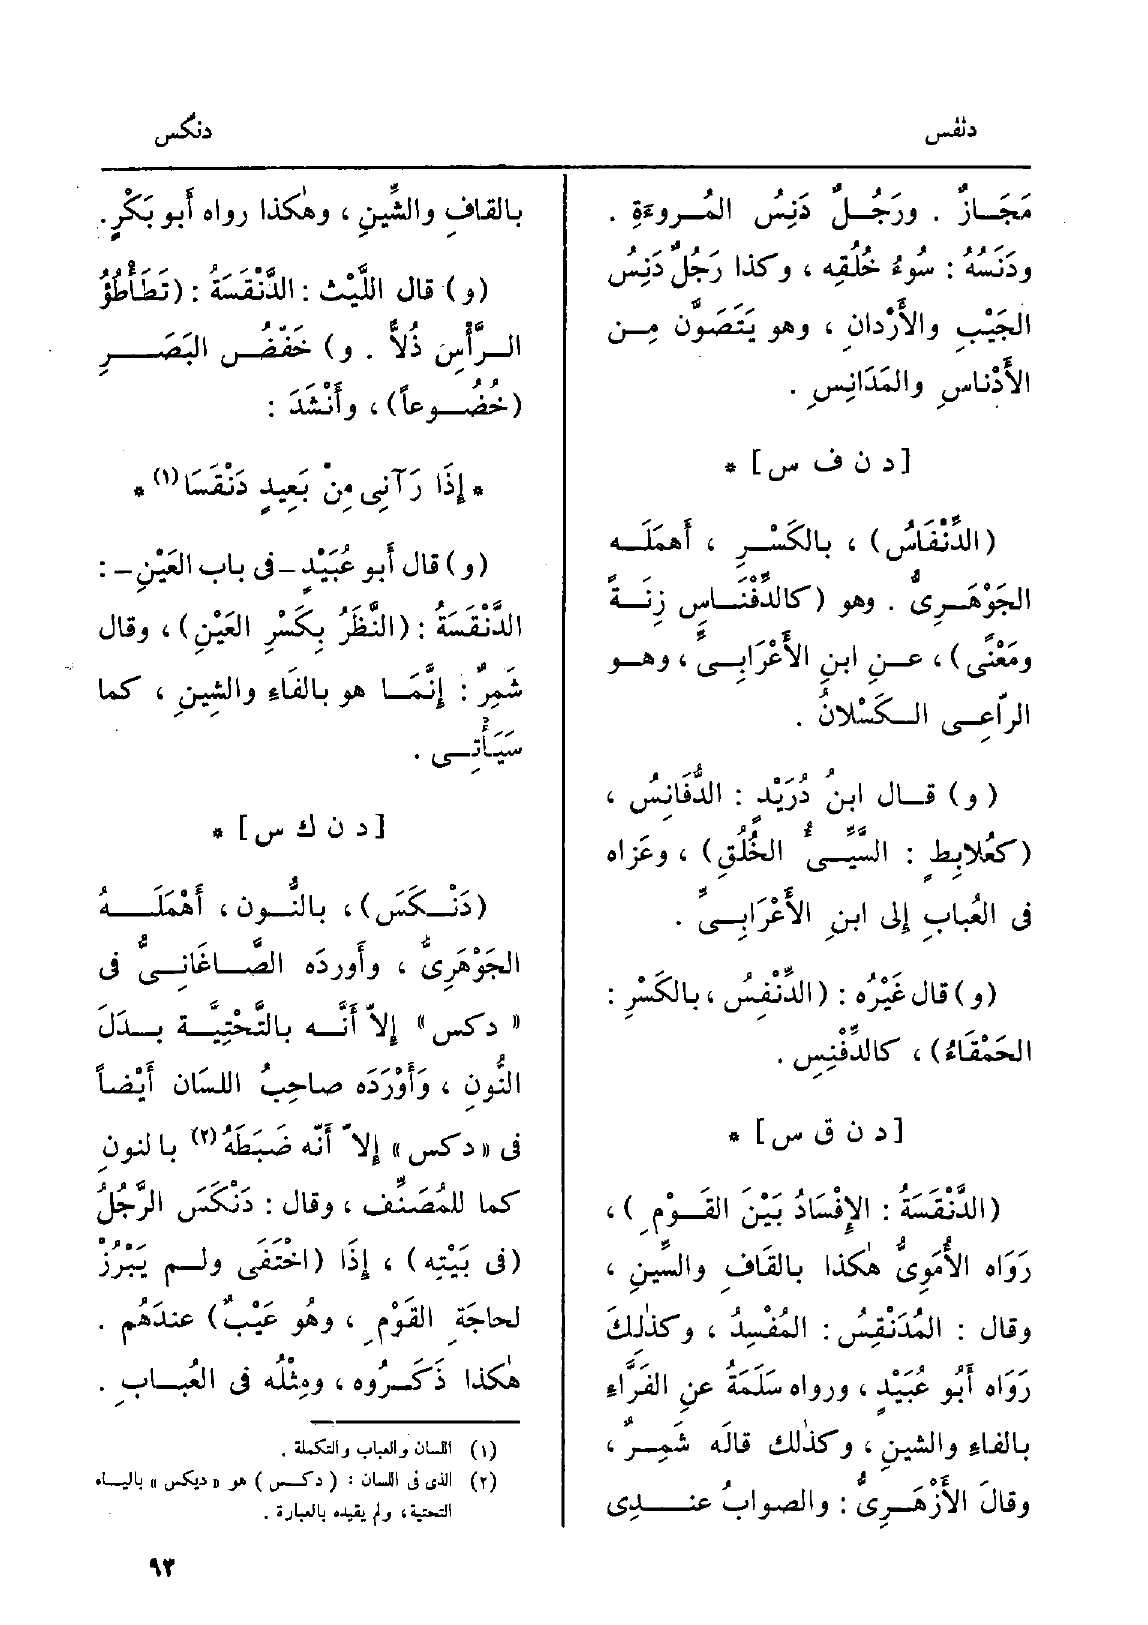 دنفس
دنكس
مَجَازٌ . ورَجُلٌ دَنِسُ المُروءَةِ .
ودَنَسُهُ : سُوءُ خُلُقِه ، وكذا رَجُلٌ دَنِسُ
الجَيْبِ والأَرْدانِ ، وهو يَتَصَوَّن مِن
الأَدْناسِ والمَدَانِسِ .
[د ن ف س] *
(الدِّنْفَاسُ) ، بالكَسْرِ ، أَهمَلَه
الجَوْهَرِىُّ . وهو (كالدِّفْنَاسِ زِنَةً
ومَعْنًى) ، عن ابنِ الأَعْرَابِىِّ ، وهو
الرّاعِى الكَسْلانُ .
(و) قال ابنُ دُرَيْدٍ : الدُّفَانِسُ ،
(كعُلابِطٍ : السَّيِّىءُ الخُلُقِ) ، وعَزاه
فى العُبابِ إلى ابنِ الأَعْرَابِىِّ .
(و) قال غَيْرُه : (الدِّنْفِسُ ، بالكَسْرِ :
الحَمْقَاءُ) ، كالدِّفْنِسِ .
[د ن ق س] *
(الدَّنْقَسَةُ : الإِفْسَادُ بَيْنَ القَوْمِ) ،
رَوَاه الأُمَوِىُّ هٰكذا بالقَافِ والسِّينِ ،
وقال : المُدَنْقِسُ : المُفْسِدُ ، وكذٰلِكَ
رَوَاه أَبُو عُبَيْدٍ ، ورواه سَلَمَةُ عنِ الفَرَّاءِ
بالفاءِ والشينِ ، وكذٰلك قالَه شَمِرٌ ،
وقالَ الأَزْهَرِىُّ : والصوابُ عندِى
بالقافِ والشِّينِ ، وهٰكذا رواه أَبو بَكْرٍ .
(و) قال اللَّيْثُ : الدَّنْقَسَةُ : (تَطَأْطُؤُ
الرَّأْسِ ذُلاًّ . و) خَفْضُ البَصَرِ
(خُضُوعاً) ، وأَنْشَدَ :
* إِذَا رَآنِى مِنْ بَعِيدٍ دَنْقَسَا (١) *
(و) قال أَبو عُبَيْدٍ – فى باب العَيْنِ – :
الدَّنْقَسَةُ : (النَّظَرُ بِكَسْرِ العَيْنِ) ، وقال
شَمِرٌ : إِنَّمَا هو بالفاءِ والشينِ ، كما
سَيَأْتِى .
[د ن ك س] *
(دَنْكَسَ) ، بالنُّون ، أَهْمَلَهُ
الجَوْهَرِىُّ ، وأَوردَه الصَّاغَانِىُّ فى
« دكس » إِلاّ أَنَّه بالتَّحْتِيَّة بدَلَ
النُّونِ ، وَأَوْرَدَه صاحِبُ اللسَان أَيْضاً
فى « دكس » إِلاّ أَنّه ضَبَطَهُ (٢) بالنونِ
كما للمُصَنِّف ، وقال : دَنْكَسَ الرَّجُلُ
(فى بَيْتِه) ، إِذَا (اخْتَفَى ولم يَبْرُزْ
لحاجَةِ القَوْمِ ، وهُو عَيْبٌ) عندَهُم .
هٰكذا ذَكَرُوه ، ومِثْلُه فى العُبابِ .
(١) اللسان والعباب والتكملة .
(٢) الذى فى اللسان : (دكس) هو « ديكس » بالياء
التحتية ، ولم يقيده بالعبارة .
٩٣